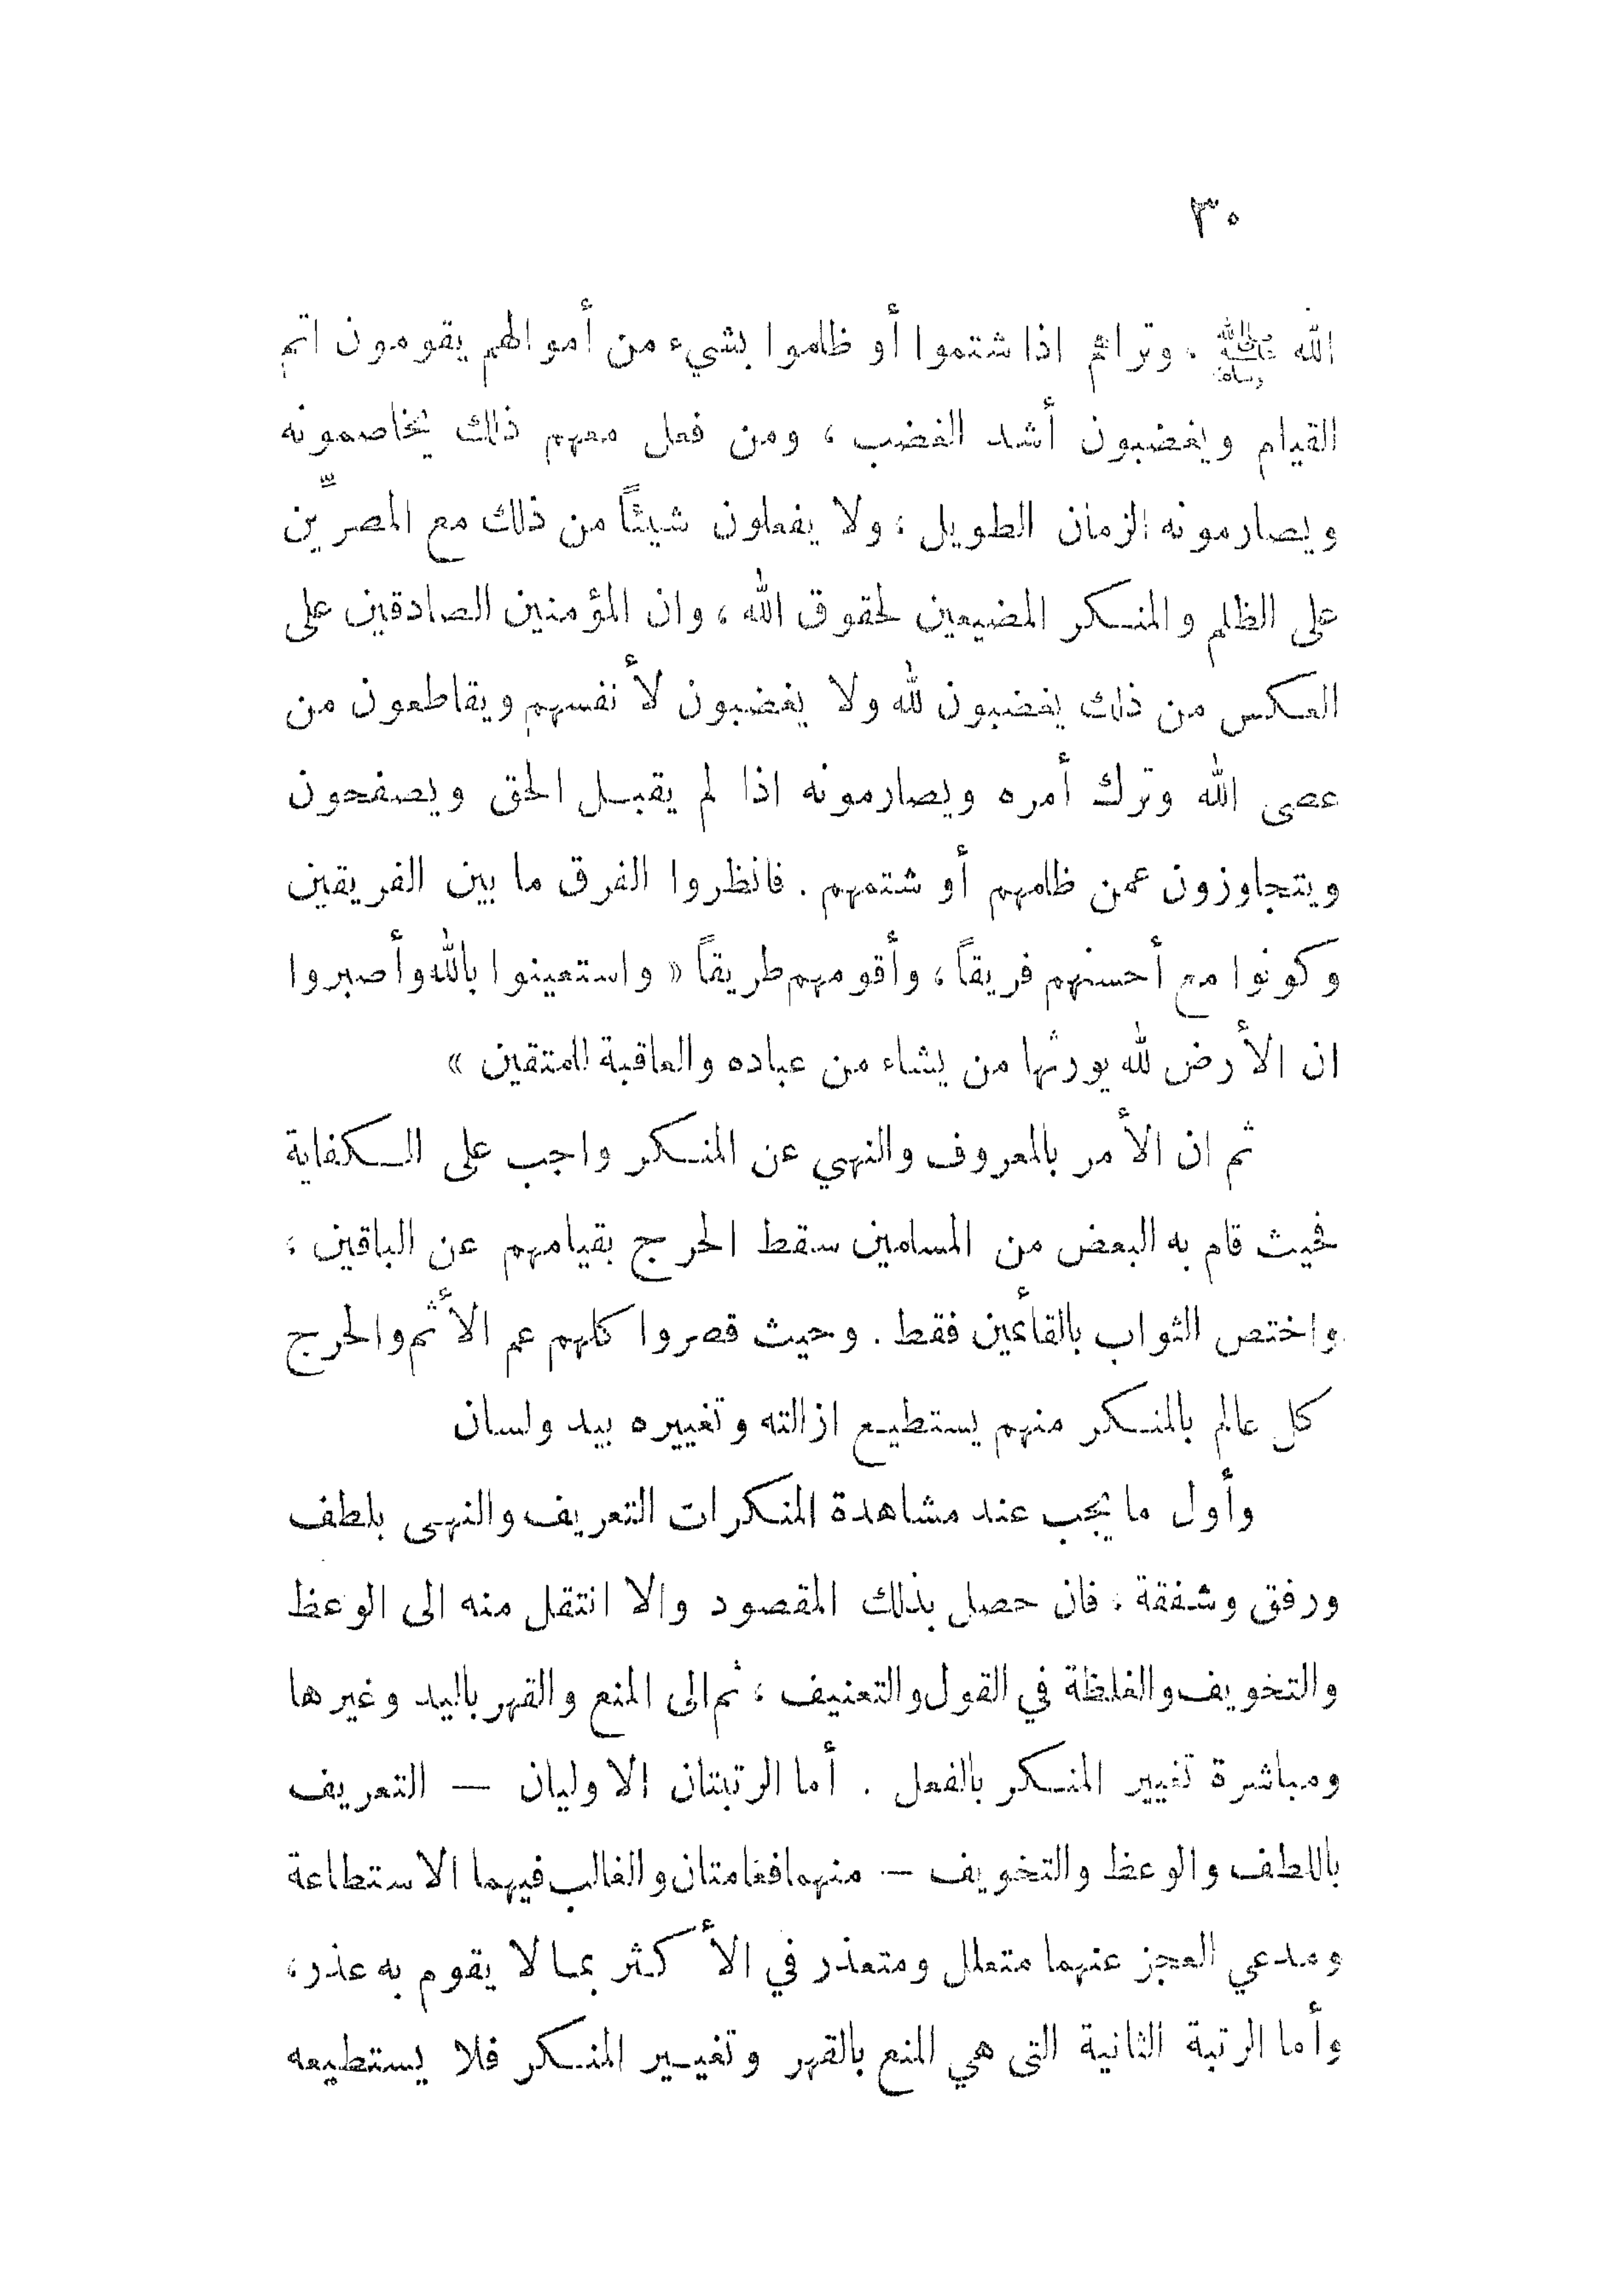 ٣٠
الله ﷺ ، وتراهم اذا شتموا أو ظلموا بشيء من أموالهم يقومون اتم
القيام ويغضبون أشد الغضب ، ومن فعل معهم ذلك يخاصمونه
ويصارمونه الزمان الطويل ، ولا يفعلون شيئاً من ذلك مع المصرّين
على الظلم والمنكر المضيعين لحقوق الله ، وان المؤمنين الصادقين على
العكس من ذلك يغضبون لله ولا يغضبون لأنفسهم ويقاطعون من
عصى الله وترك أمره ويصارمونه اذا لم يقبل الحق ويصفحون
ويتجاوزون عمن ظلمهم أو شتمهم . فانظروا الفرق ما بين الفريقين
وكونوا مع أحسنهم فريقاً ، وأقومهم طريقاً « واستعينوا بالله وأصبروا
ان الأرض لله يورثها من يشاء من عباده والعاقبة للمتقين »
ثم ان الأمر بالمعروف والنهي عن المنكر واجب على الكفاية
فحيث قام به البعض من المسلمين سقط الحرج بقيامهم عن الباقين ،
واختص الثواب بالقائمين فقط . وحيث قصروا كلهم عم الأثم والحرج
كل عالم بالمنكر منهم يستطيع ازالته وتغييره بيد ولسان
وأول ما يجب عند مشاهدة المنكرات التعريف والنهى بلطف
ورفق وشفقة ، فان حصل بذلك المقصود والا انتقل منه الى الوعظ
والتخويف والغلظة في القول والتعنيف ، ثم الى المنع والقهر باليد وغيرها
ومباشرة تغيير المنكر بالفعل . أما الرتبتان الاوليان — التعريف
باللطف والوعظ والتخويف — منهما فعامتان والغالب فيهما الاستطاعة
ومدعي العجز عنهما متعلل ومتعذر في الأكثر بما لا يقوم به عذر ،
وأما الرتبة الثانية التى هي المنع بالقهر وتغيير المنكر فلا يستطيعه